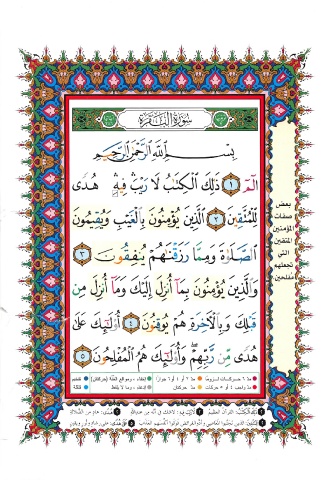 سورة البقرة
بسم الله الرحمن الرحيم
الٓمٓ ١ ذَٰلِكَ ٱلْكِتَٰبُ لَا رَيْبَ فِيهِ هُدًى
لِّلْمُتَّقِينَ ٢ ٱلَّذِينَ يُؤْمِنُونَ بِٱلْغَيْبِ وَيُقِيمُونَ
ٱلصَّلَوٰةَ وَمِمَّا رَزَقْنَٰهُمْ يُنفِقُونَ ٣
وَٱلَّذِينَ يُؤْمِنُونَ بِمَآ أُنزِلَ إِلَيْكَ وَمَآ أُنزِلَ مِن
قَبْلِكَ وَبِٱلْءَاخِرَةِ هُمْ يُوقِنُونَ ٤ أُو۟لَٰٓئِكَ عَلَىٰ
هُدًى مِّن رَّبِّهِمْ وَأُو۟لَٰٓئِكَ هُمُ ٱلْمُفْلِحُونَ ٥
بعض
صفات
المؤمنين
المتقين
التي
تجعلهم
مفلحين